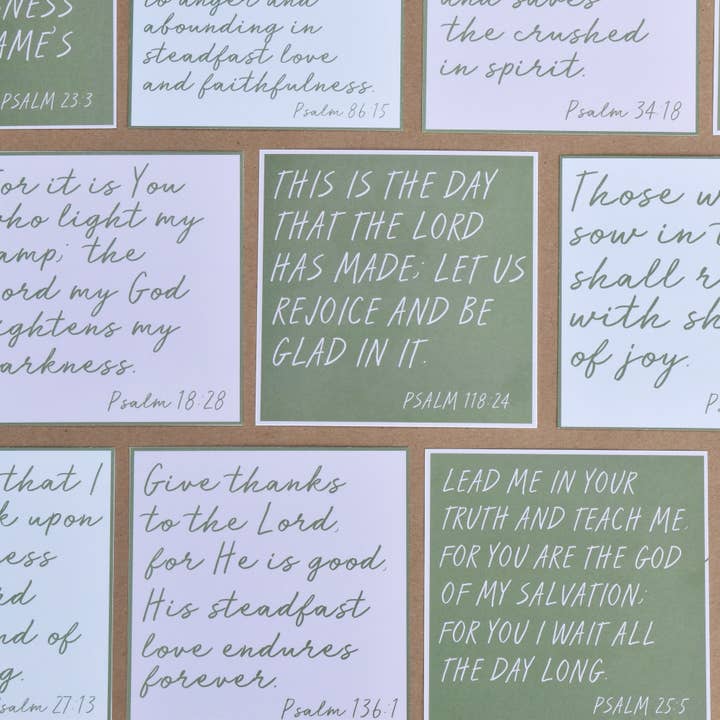 NESS
AME'S
PSALM 23:3
to anger and
abounding in
steadfast love
and faithfulness.
Psalm 86:15
and saves
the crushed
in spirit.
Psalm 34:18
For it is You
who light my
lamp; the
Lord my God
lightens my
darkness.
Psalm 18:28
THIS IS THE DAY
THAT THE LORD
HAS MADE; LET US
REJOICE AND BE
GLAD IN IT.
PSALM 118:24
Those w
sow in t
shall r
with sh
of joy.
P
that I
k upon
ess
rd
nd of
g.
Psalm 27:13
Give thanks
to the Lord,
for He is good,
His steadfast
love endures
forever.
Psalm 136:1
LEAD ME IN YOUR
TRUTH AND TEACH ME,
FOR YOU ARE THE GOD
OF MY SALVATION;
FOR YOU I WAIT ALL
THE DAY LONG.
PSALM 25:5